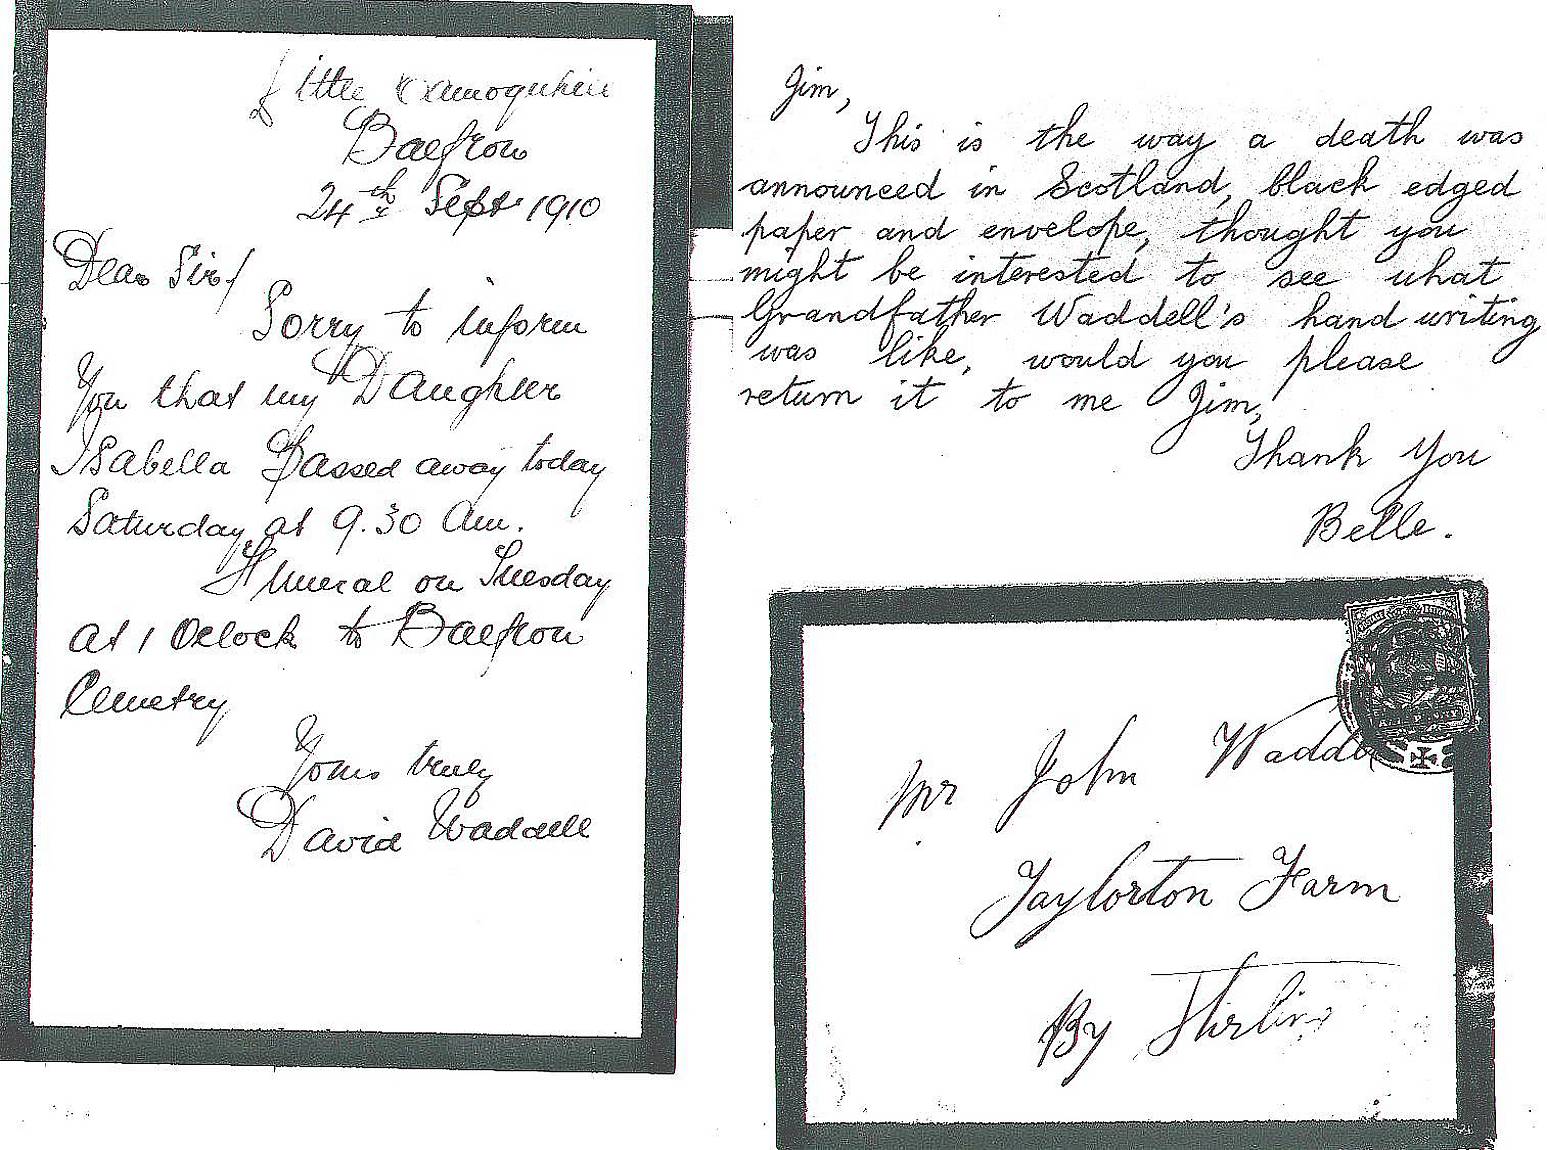 Little Camoquhill
Balfron
24th Sept 1910
Dear Sir/
Sorry to inform
You that my Daughter
Isabella Passed away today
Saturday at 9.30 Am.
Funeral on Tuesday
at 1 Oclock to Balfron
Cemetry
Yours truly
David Waddell
Jim,
This is the way a death was
announced in Scotland, black edged
paper and envelope, thought you
might be interested to see what
Grandfather Waddell's hand writing
was like, would you please
return it to me Jim,
Thank You
Belle.
Mr John Wadde
Taylorton Farm
By Stirling